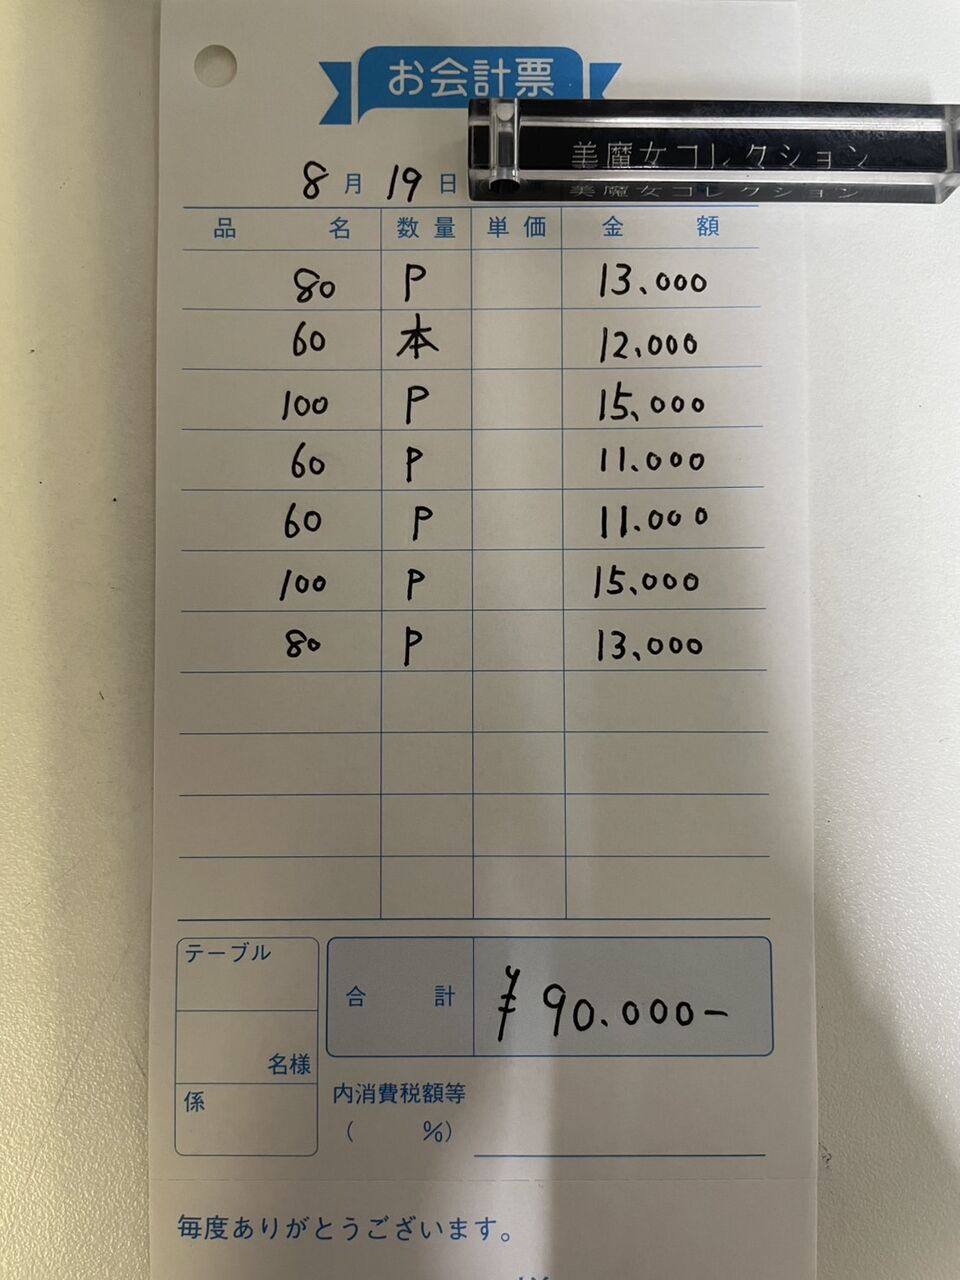 お会計票
美魔女コレクション
8月19日
品名 数量 単価 金額
80 P 13,000
60 本 12,000
100 P 15,000
60 P 11.000
60 P 11.000
100 P 15,000
80 P 13,000
テーブル
名様
係
合計 ¥90.000-
内消費税額等
( %)
毎度ありがとうございます。